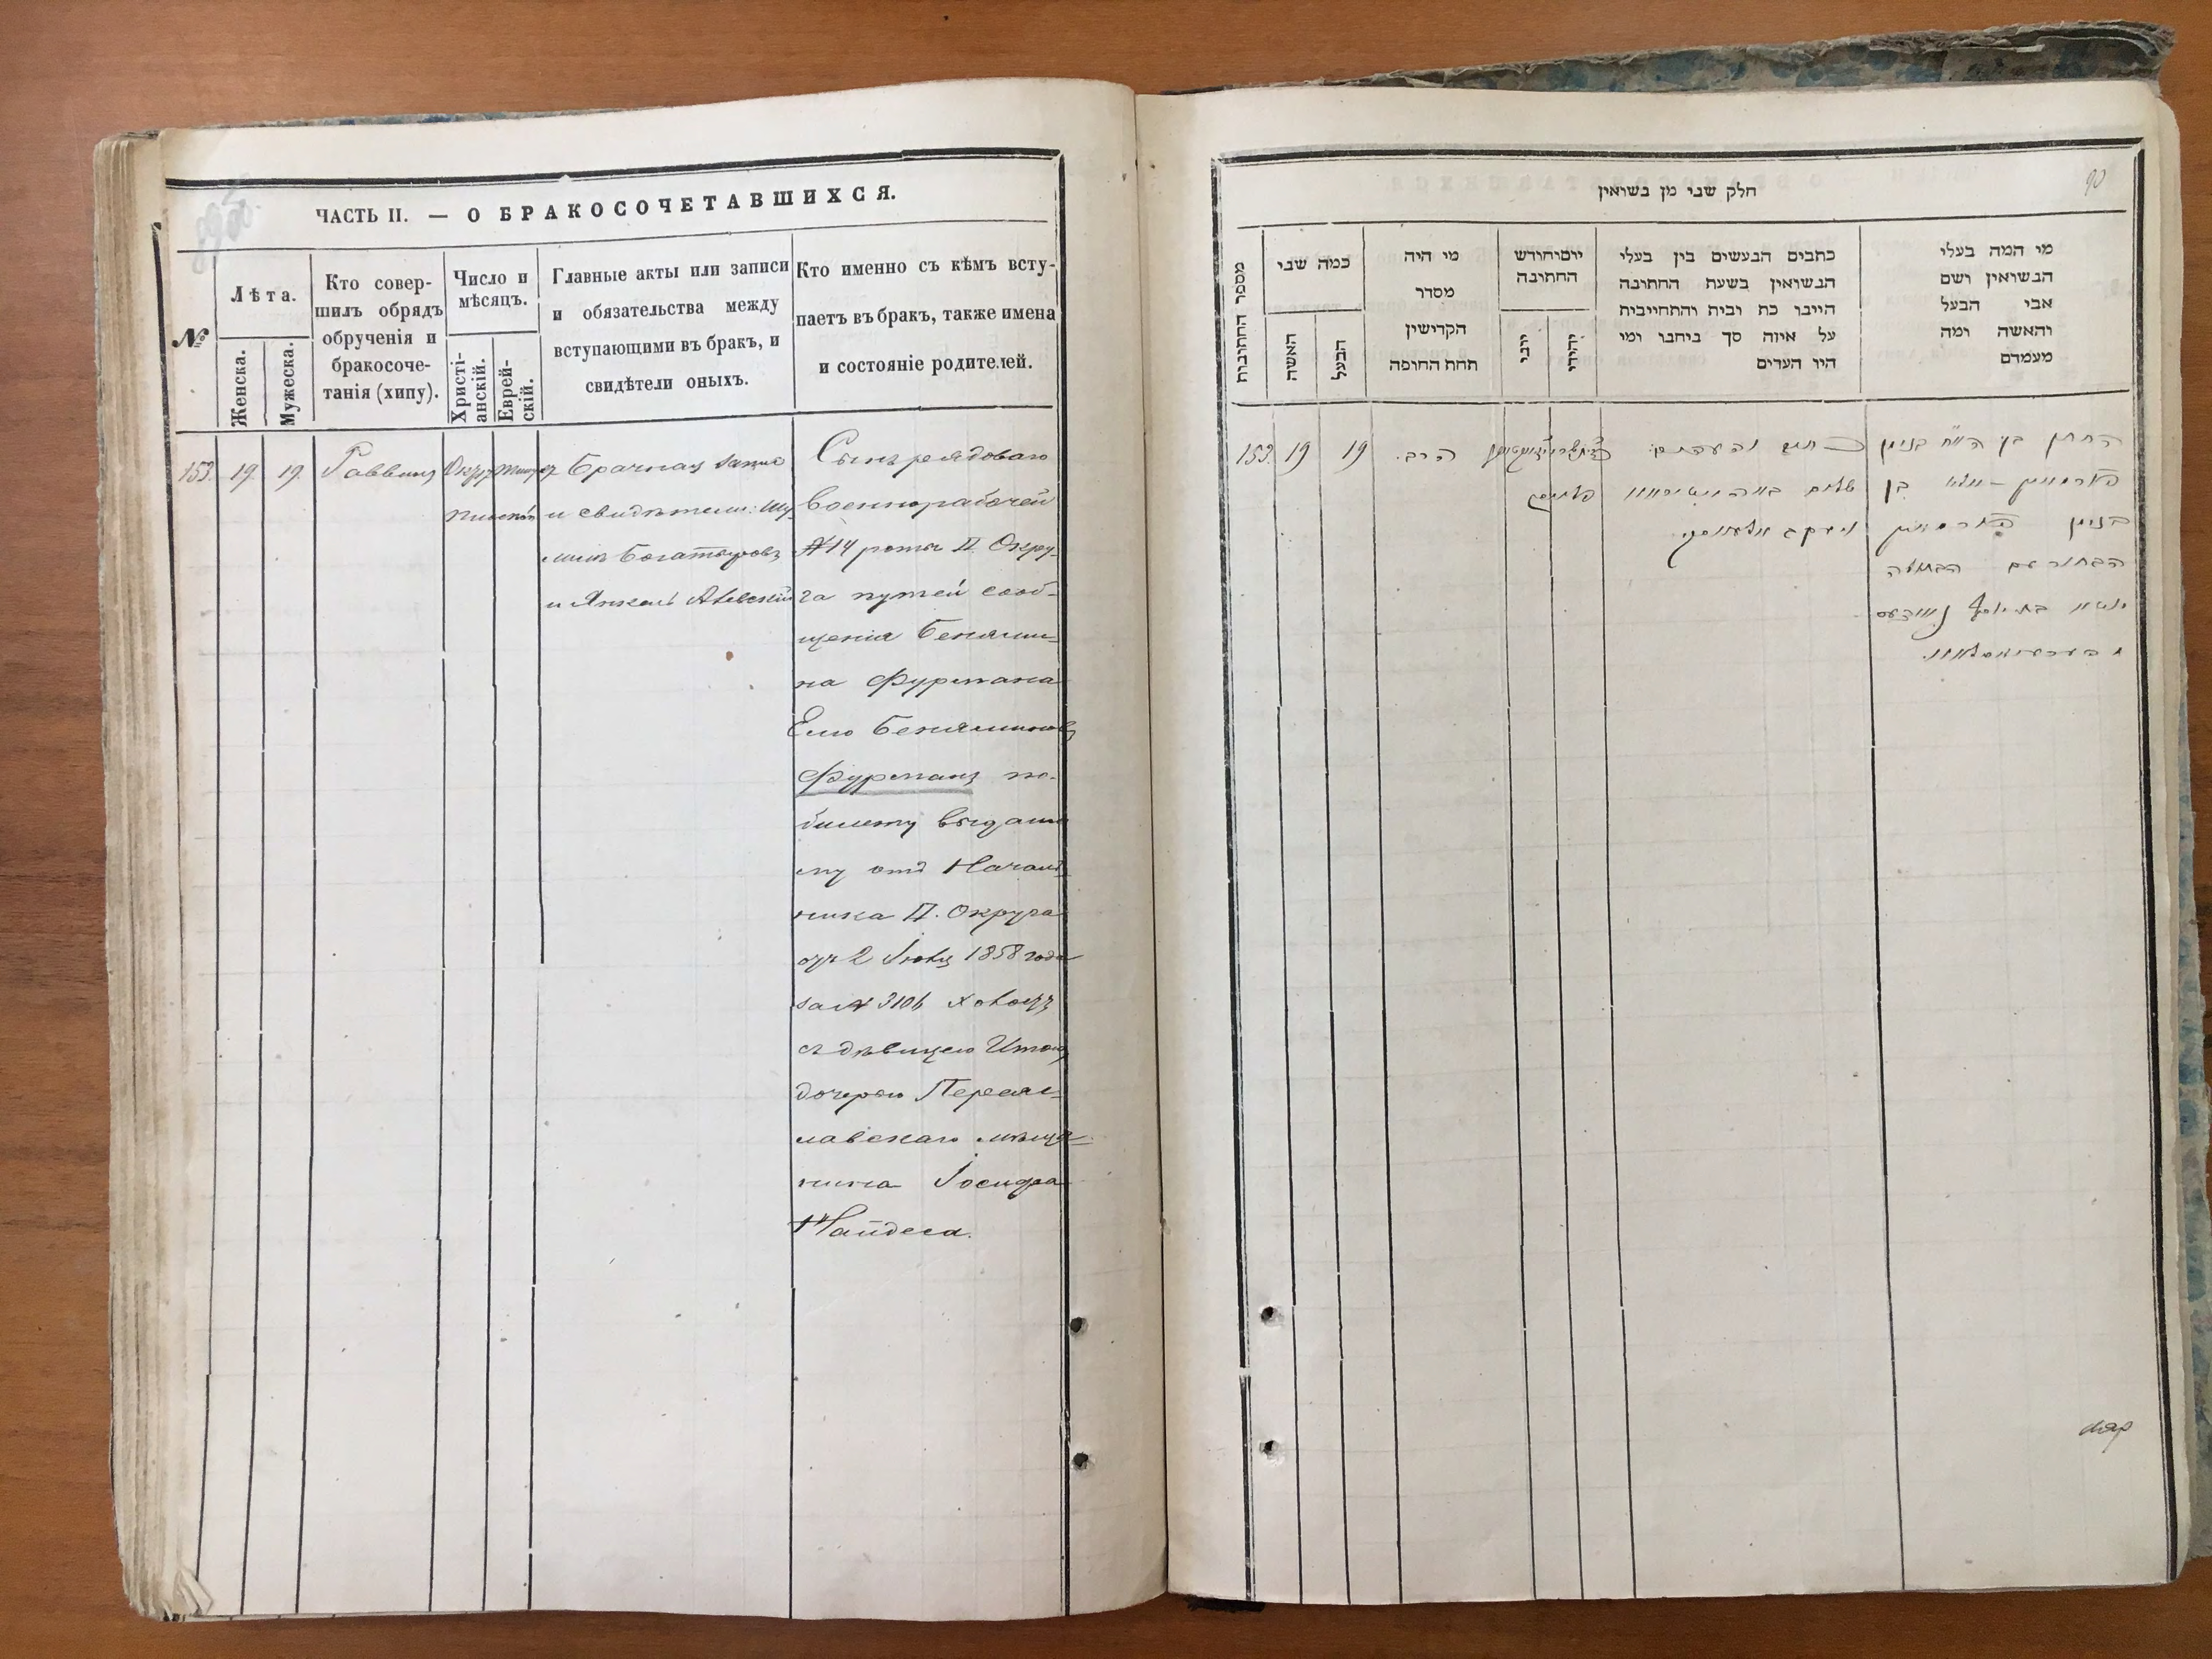 ЧАСТЬ II. — О БРАКОСОЧЕТАВШИХСЯ.
№
Лѣта.
Женска.
Мужеска.
Кто совер-
шилъ обрядъ
обрученія и
бракосоче-
танія (хипу).
Число и
мѣсяцъ.
Христі-
анскій.
Еврей-
скій.
Главные акты или записи
и обязательства между
вступающими въ бракъ, и
свидѣтели оныхъ.
Кто именно съ кѣмъ всту-
паетъ въ бракъ, также имена
и состояніе родителей.
153.
19.
19.
Раввинъ
Брачная запис
и свидѣтели: Шу-
лимъ Богатыровъ
и Янкель Алевскій
Сынъ рядоваго
военнорабочей
№ 14 роты II. Окру-
га путей сооб-
щенія Бенями-
на Фурмана
Елю Беняминовъ
Фурманъ по
билету выданно
му отъ Началь-
ника II. Округа
2 1858 года
за № 3106 холостъ
съ дѣвицею Итою
дочерью Переяс-
лавскаго мѣща-
нина Іосифа
Найдеса.
90
חלק שני מן נשואין
מספר החתונות
כמה שני
האשה
הבעל
מי היה
מסדר
הקדישין
תחת החופה
יום וחודש
החתונה
ייני
יהודי
כתבים הנעשים בין בעלי
הנשואין בשעת החתונה
היינו כת ובית והתחייבית
על איזה סך ביחבו ומי
היו העדים
מי המה בעלי
הנשואין ושם
אבי הבעל
והאשה ומה
מעמדם
153.
19
19
הרב.
והעדים:
החתן בן בנימן
בן
בנימן
הבחור עם הבתולה